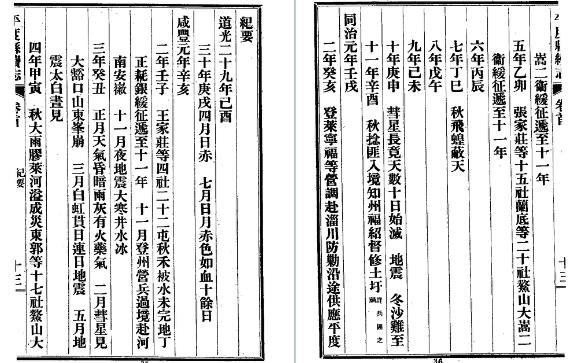 紀要
道光二十九年己酉
三十年庚戌四月日赤 七月日月赤色如血十餘日
咸豐元年辛亥
二年壬子 王家莊等四社二十二屯秋禾被水未完地丁
正耗銀緩征遞至十一年 十一月登州營兵過境赴河
南安徽 十一月夜地震大寒井水冰
三年癸丑 正月天氣昏暗雨灰有火藥氣 二月彗星見
大豁口山東峯崩 三月白虹貫日連日地震 五月地
震太白晝見
四年甲寅 秋大雨膠萊河溢成災東郭等十七社鰲山大
平度縣續志 卷首 紀要 十三
嵩二衛緩征遞至十一年
五年乙卯 張家莊等十五社蘭底等二十社鰲山大嵩二
衛緩征遞至十一年
六年丙辰
七年丁巳 秋飛蝗蔽天
八年戊午
九年己未
十年庚申 彗星長竟天數十日始滅 地震 冬沙雞至
十一年辛酉 秋捻匪入境知州福紹督修土圩
同治元年壬戌
二年癸亥 登萊寧福等營調赴淄川防勦沿途供應平度
卷首
十三
36